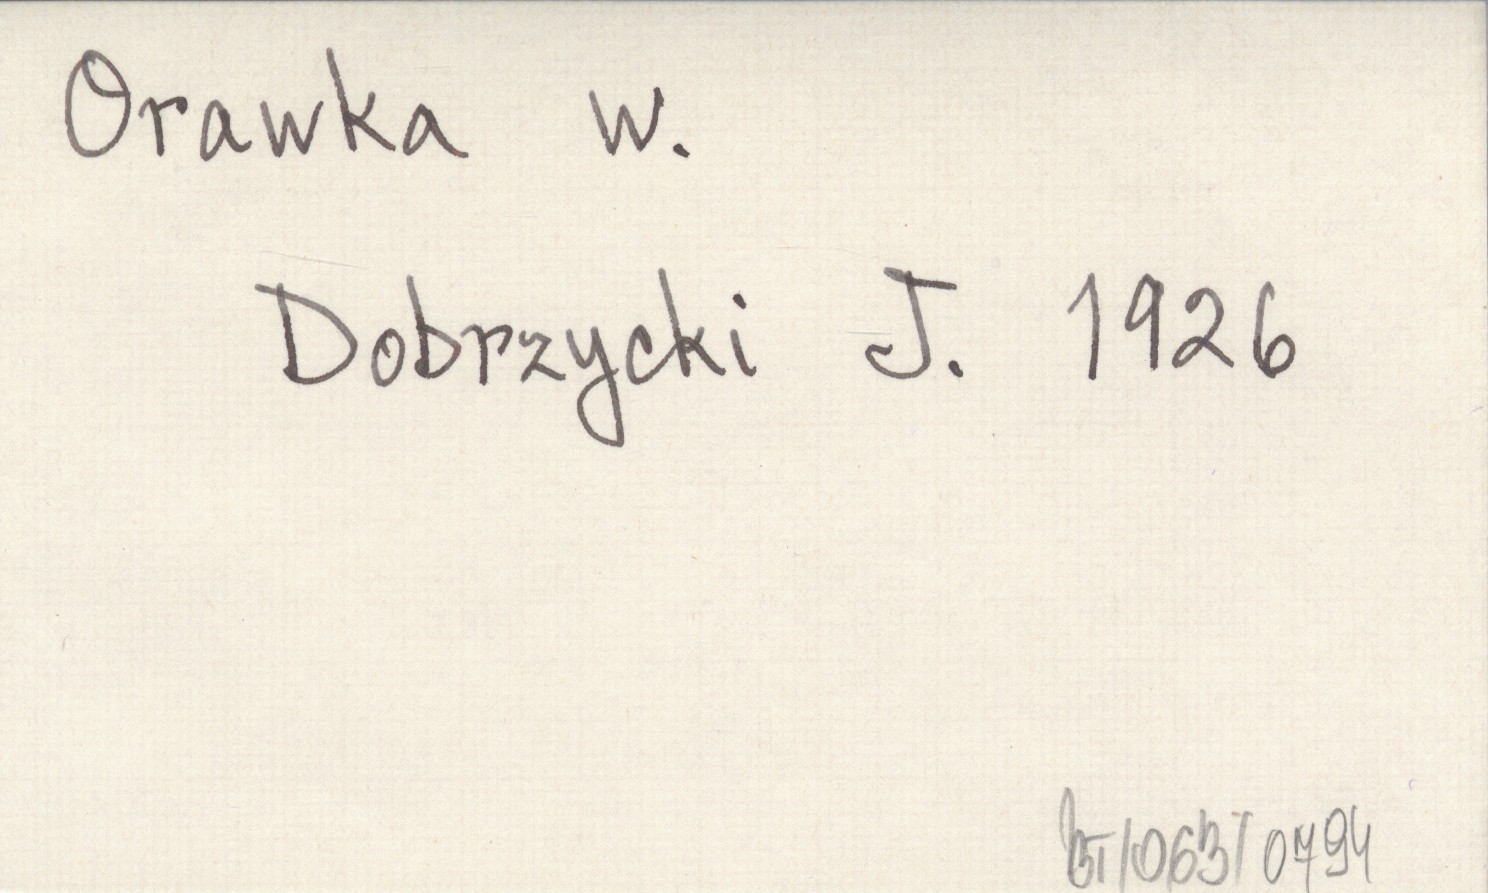 Orawka w.
Dobrzycki J. 1926
BT/063/0794